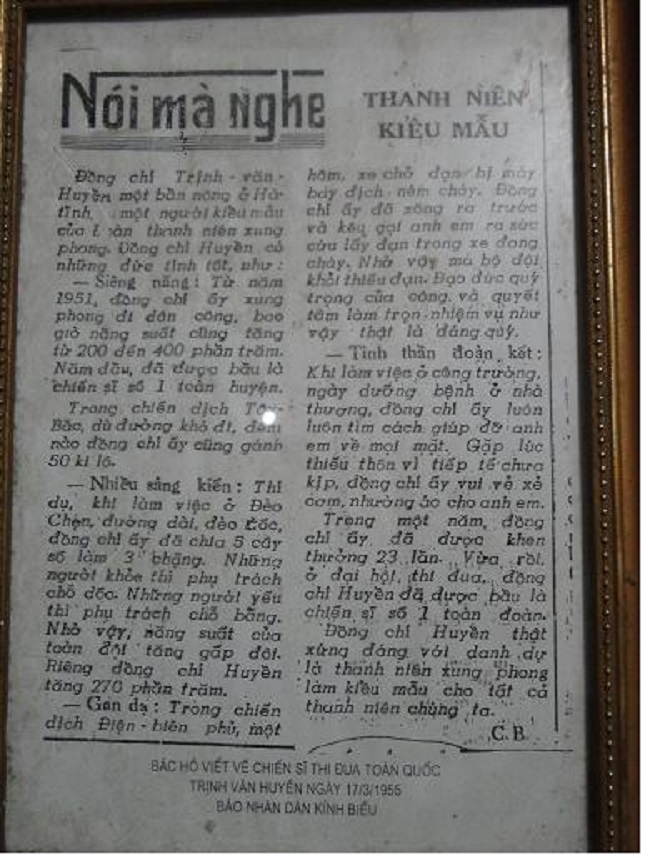 Nói mà nghe
THANH NIÊN
KIỂU MẪU
Đồng chí Trịnh - văn -
Huyền một bần nông ở Hà-
tĩnh, một người kiểu mẫu
của thanh niên xung
phong. Đồng chí Huyền có
những đức tính tốt, như :
— Siêng năng : Từ năm
1951, đồng chí ấy xung
phong đi dân công, bao
giờ năng suất cũng tăng
từ 200 đến 400 phần trăm.
Năm đầu, đã được bầu là
chiến sĩ số 1 toàn huyện.
Trong chiến dịch Tây-
Bắc, dù đường khó đi, đêm
nào đồng chí ấy cũng gánh
50 ki lô.
— Nhiều sáng kiến : Thí
dụ, khi làm việc ở Đèo
Chẹn, đường dài, đèo dốc,
đồng chí ấy đã chia 5 cây
số làm 3 chặng. Những
người khỏe thì phụ trách
chỗ dốc. Những người yếu
thì phụ trách chỗ bằng.
Nhờ vậy, năng suất của
toàn đội tăng gấp đôi.
Riêng đồng chí Huyền
tăng 270 phần trăm.
— Gan dạ : Trong chiến
dịch Điện - biên phủ, một
hôm, xe chở đạn bị máy
bay địch ném cháy. Đồng
chí ấy đã xông ra trước
và kêu gọi anh em ra sức
cứu lấy đạn trong xe đang
cháy. Nhờ vậy mà bộ đội
khỏi thiếu đạn. Đạo đức quý
trọng của công và quyết
tâm làm trọn nhiệm vụ như
vậy thật là đáng quý.
— Tinh thần đoàn kết :
Khi làm việc ở công trường,
ngày dưỡng bệnh ở nhà
thương, đồng chí ấy luôn
luôn tìm cách giúp đỡ anh
em về mọi mặt. Gặp lúc
thiếu thốn vì tiếp tế chưa
kịp, đồng chí ấy vui vẻ xẻ
cơm, nhường áo cho anh em.
Trong một năm, đồng
chí ấy đã được khen
thưởng 23 lần. Vừa rồi,
ở đại hội thi đua, đồng
chí Huyền đã được bầu là
chiến sĩ số 1 toàn đoàn.
Đồng chí Huyền thật
xứng đáng với danh dự
là thanh niên xung phong
làm kiểu mẫu cho tất cả
thanh niên chúng ta.
C. B
BÁC HỒ VIẾT VỀ CHIẾN SĨ THI ĐUA TOÀN QUỐC
TRỊNH VĂN HUYỀN NGÀY 17/3/1955
BÁO NHÂN DÂN KÍNH BIẾU